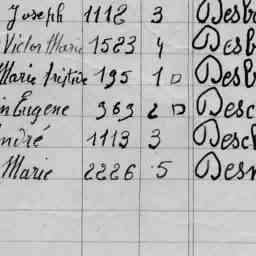 Joseph 1112 3 Desb
Victor Marie 1523 4 Desb
Marie 195 1 D Desb
in Eugene 363 2 D Desc
André 1113 3 Desc
Marie 2226 5 Des